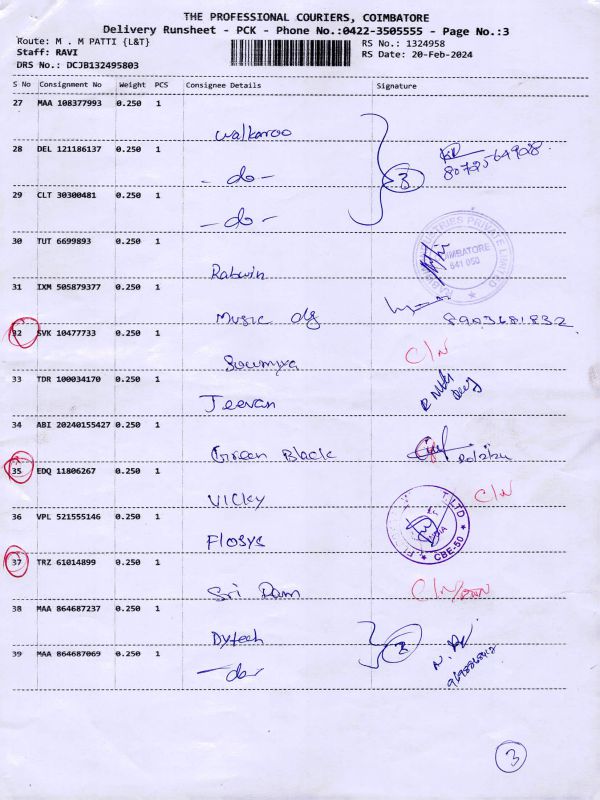 THE PROFESSIONAL COURIERS, COIMBATORE
Delivery Runsheet - PCK - Phone No.:0422-3505555 - Page No.:3
Route: M . M PATTI {L&T}
RS No.: 1324958
Staff: RAVI
RS Date: 20-Feb-2024
DRS No.: DCJB132495803
S No Consignment No Weight PCS Consignee Details Signature
27 MAA 108377993 0.250 1
walkaroo
28 DEL 121186137 0.250 1
-do-
3
29 CLT 30300481 0.250 1
-do-
30 TUT 6699893 0.250 1
Rabwin
COIMBATORE
641 050
31 IXM 505879377 0.250 1
Music dg
8903681832
32 SVK 10477733 0.250 1
Soumya
C/N
33 TDR 100034170 0.250 1
Jeevan
34 ABI 20240155427 0.250 1
Green Black
35 EDQ 11806267 0.250 1
Vicky
C/N
36 VPL 521555146 0.250 1
Flosys
T.LTD
INDIA
CBE-50
37 TRZ 61014899 0.250 1
Sri Ram
38 MAA 864687237 0.250 1
Dytech
39 MAA 864687069 0.250 1
-do-
3